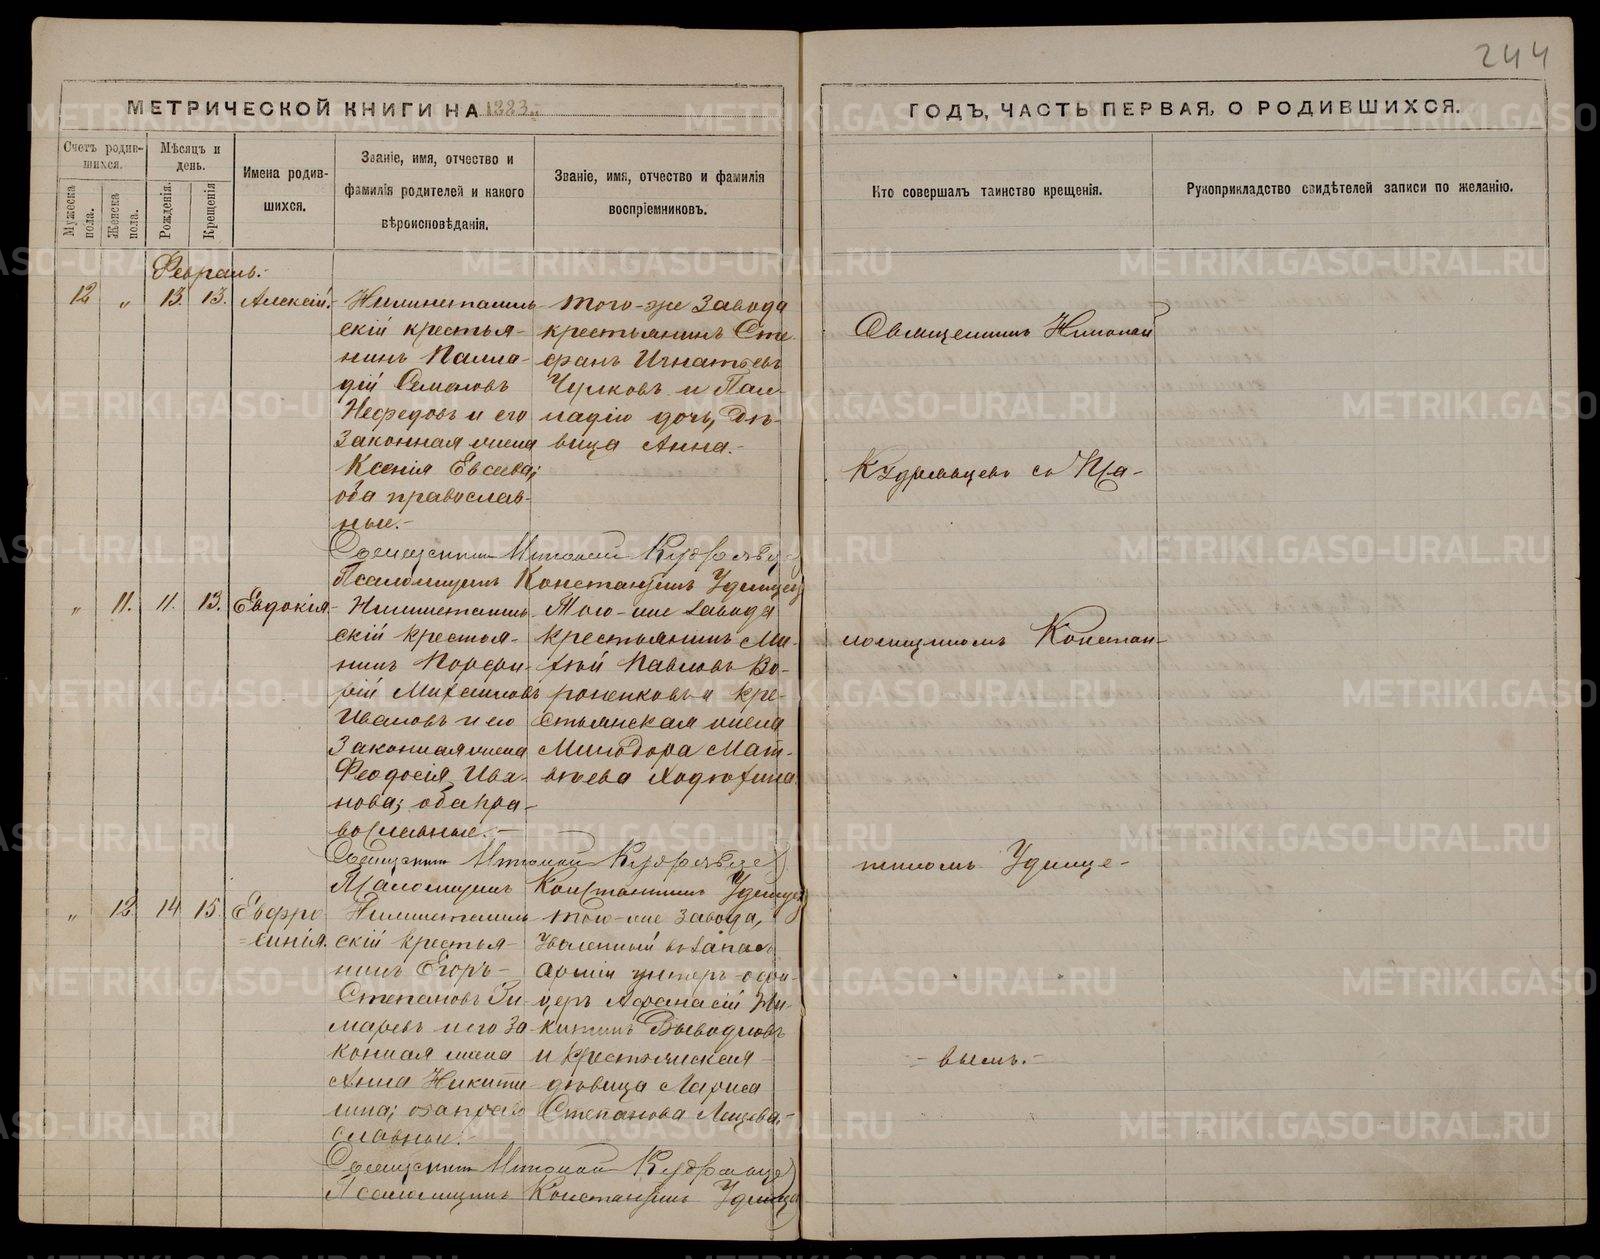 244
МЕТРИЧЕСКОЙ КНИГИ НА 1883
ГОДЪ, ЧАСТЬ ПЕРВАЯ, О РОДИВШИХСЯ.
Счетъ родив-
шихся.
Мужеска
пола.
Женска
пола.
Мѣсяцъ и
день.
Рожденія.
Крещенія
Имена родив-
шихся.
Званіе, имя, отчество и
фамилія родителей и какого
вѣроисповѣданія.
Званіе, имя, отчество и фамилія
воспріемниковъ.
Кто совершалъ таинство крещенія.
Рукоприкладство свидѣтелей записи по желанію.
Февраль.
12 „ 13. 13. Алексій.
скій крестья-
нинъ Палла-
дій Семеновъ
Нефедовъ и его
законная жена
Ксенія Евсеева;
оба православ-
ные.-
Того-же завода
крестьянинъ Сте-
фанъ Игнатьевъ
Чулковъ и Пал-
ладію дочь, дѣ-
вица Анна.-
Священникъ Николай
Кудрявцевъ съ Пса-
Священникъ Николай Кудрявцев
Псаломщикъ Константинъ Удинцев
„ 11. 11. 13. Евдокія
скій крестья-
нинъ Порфи-
рій Михаиловъ
Ивановъ и его
законная жена
Феодосія Ива-
нова; оба пра-
вославные.-
Того-же завода
крестьянинъ Ми-
Павловъ Во-
роненковъ и кре-
стьянская жена
Минодора Мат-
вѣева
ломщикомъ Констан-
Священникъ Николай Кудрявцев
Псаломщикъ Константинъ Удинцев
тиномъ Удинце-
„ 12. 14 15. Евфро
синія.
скій крестья-
нинъ Егоръ
Степановъ Зи-
маревъ и его за-
конная жена
Анна Никити
на; оба право
славные.-
Того-же завода,
уволенный въ запасъ
арміи унтеръ-офи-
церъ Афанасій Ни-
китинъ
и крестьянская
дѣвица Лариса
Степанова
-вымъ.-
Священникъ Николай Кудрявцев
Псаломщикъ Константинъ Удинцев
METRIKI.GASO-URAL.RU